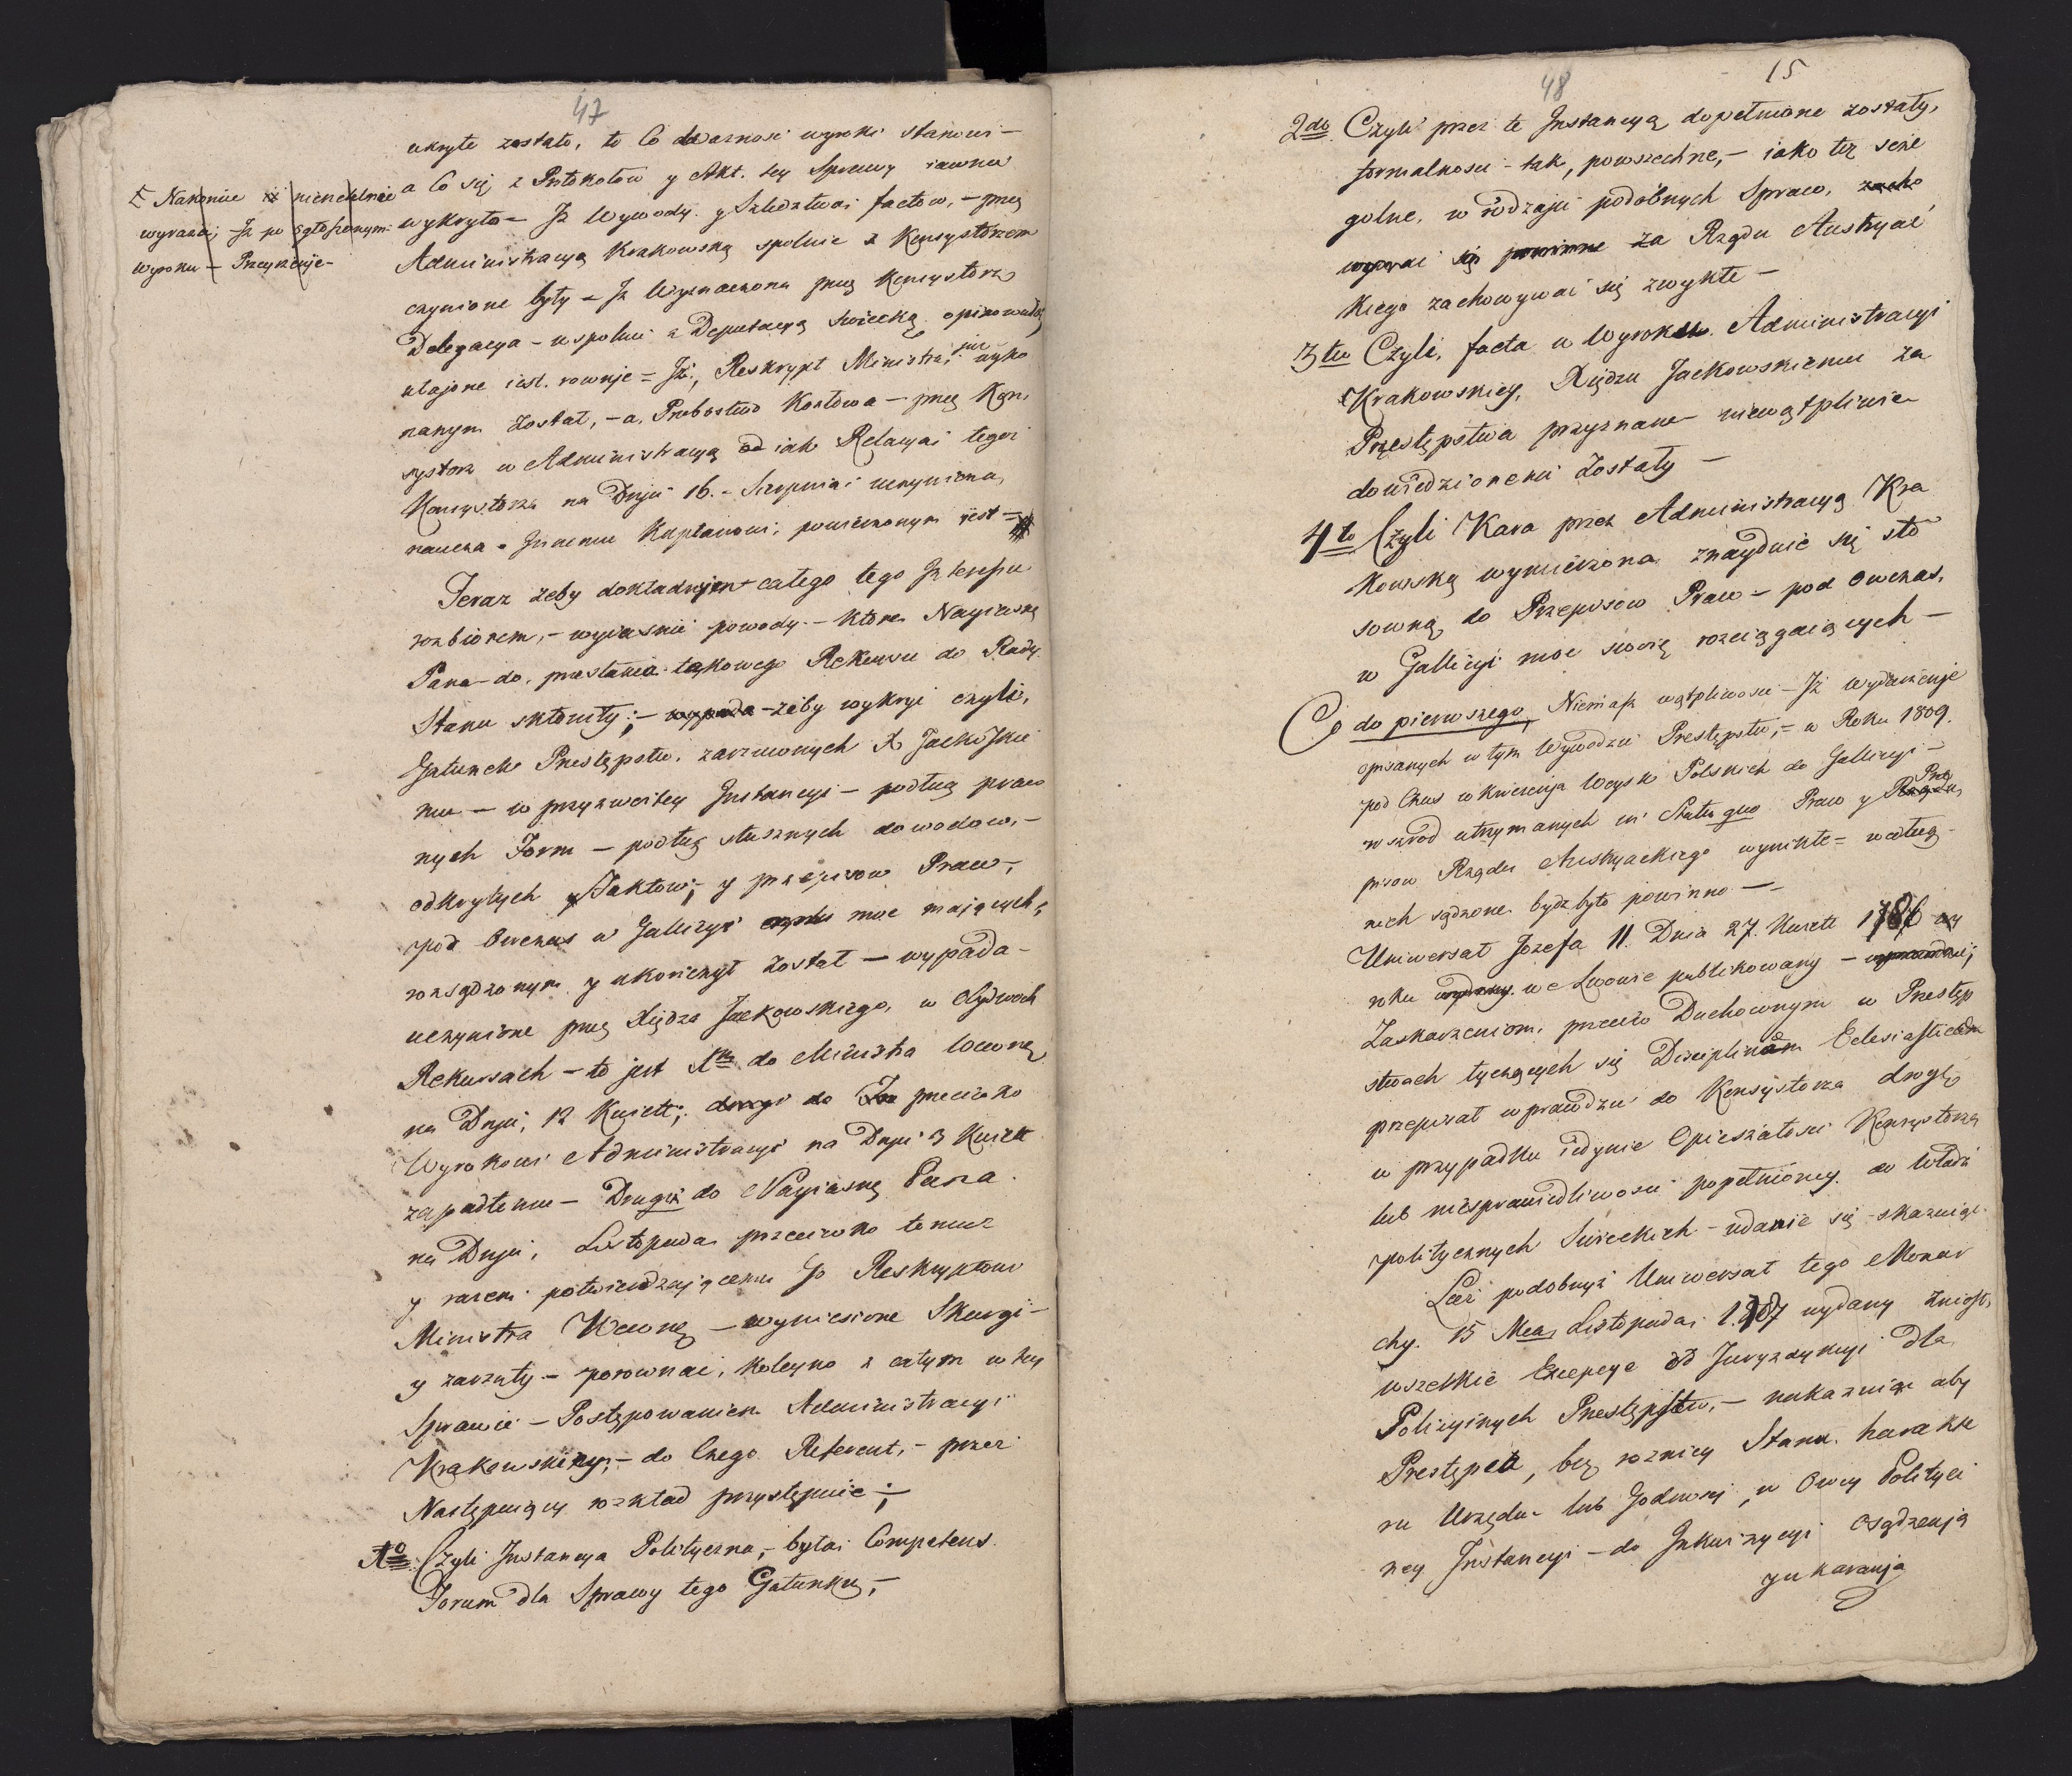 47
ukryte zostało, to Co ważnosci wyroku stanowi –
a Co się z Protokołow y Akt. tey Sprawy iawnie
wykryto – Jż Wywody y Szledztwa factow, – przez
Administracyą Krakowską spolnie z Konsystorzem
czynione były – Jż Wyznaczona przez Konsystorz
Delegacya – wspolnie z Deputacyą Swiecką
utajone iest. rownje = Jż, Reskrypt Ministra, już wyko
nanym został, – a, Probostwo – przez Kon
systorz w Administracyą od iak Relacyai tegoż
Konsystorza na Dniu 16. – Sierpnia uczyniona
naucza – Jnnemu Kapłanowi, powierzonym jest –
Nakoniec iż
wyraza; Jż po ogłoszonym
Wyroku –
Teraz żeby dokładnym całego tego Jnteressu
rozbiorem, – wyiasnić powody – ktore Nayiasne
Pana do, przesłania takowego Rekursu do Rady
Stanu skłoniły; – wypada – żeby wykryć czyli,
Gatunek Przestępstw, zarzuconych X Jackowskie
mu – w przyzwoitey Jnstancyi – podług praw
nych Form – podług słusznych dowodow, –
odkrytych Faktow; y przepisow Praw,
pod Owczas w Gallicyi moc mających,
rozsądzonym y ukończył został – wypada –
uczynione przez Xiędza Jackowskiego, w Obydwoch
Rekursach – to jest 1m do Ministra Wewnę
na Dniu, 12 Kwiett; drugi do przeciwko
Wyrokowi Administracyi na Dniu 3 Kwiett
zapadłemu – Drugi do Nayiasneg Pana.
na Dniu, Listopada przeciwko temuż
y razem potwierdzaiącemu Go Reskryptowi
Ministra Wewnę – wyniesione Skargi –
y zarzuty – porownać, koleyno z całym w tey
Sprawie – Postępowaniem Administracyi
Krakowskiey; – do Czego Referent, – przez
Następuiący rozkład przystępuie;
1o Czyli Jnstancya Polityczna, – byłai Competens
Forum dla Sprawy tego Gatunku, –
48
15
2do Czyli przez te Jnstancyą dopełnione zostały,
formalnosci – tak, powszechne, – iako też scze
golne, w rodzaju podobnych Spraw, zacho
wywac się powinne za Rządu Austryac
kiego zachowywać się zwykłe –
3tio Czyli, facta w Wyroku Administracyi
Krakowskiey, Xiędzu Jackowskiemu za
Przestępstwa przyznane niewątpliwie
dowiedzionemi zostały –
4to Czyli Kara przez Administracyą Kra
kowską wymierzona znayduie się sto
sowną do Przepisow Praw – pod owczas,
w Gallicyi moc swoię rozciągaiących –
Co do pierwszego, Niemasz wątpliwosci – Jż wydarzenie
opisanych w tym Wywodzie Przestępstw, – w Roku 1809.
pod Czas wkroczenja Woysk Polskich do Gallicyi –
w szrod utrzymanych in Statu quo Praw y Prze
pisow Rządu Austryackiego wynikłe = według
nich sądzone bydz było powinno –
Uniwersał Jozefa II. Dnia 27. Kwiett 1786
roku wydany w Lwowie publikowany –
Zaskarzeniom, przeciw Duchownym w Przestęp
stwach tyczących się Disciplinam Eclesiasticam
przepisał wprawdzie do Konsystorza drogę
w przypadku iedynie Opieszałosci Konsystorza
lub niesprawiedliwosci popełnioney do Władz
politycznych Swieckich – udanie się – skazuiąc.
Lecz podobnyż Uniwersał tego Monar
chy. 15 Mca Listopada, 1787 wydany zniosł,
wszelkie Excepcye od Juryzdykcyi dla
Policyinych Przestępstw, – nakazuiąc aby
Przestępca, bez roznicy Stanu. harakte
ru Urzędu lub Godnosci, w Owey Polityci
zney Jnstancyi – do Jnkwizycyi osądzenja
y ukaranja